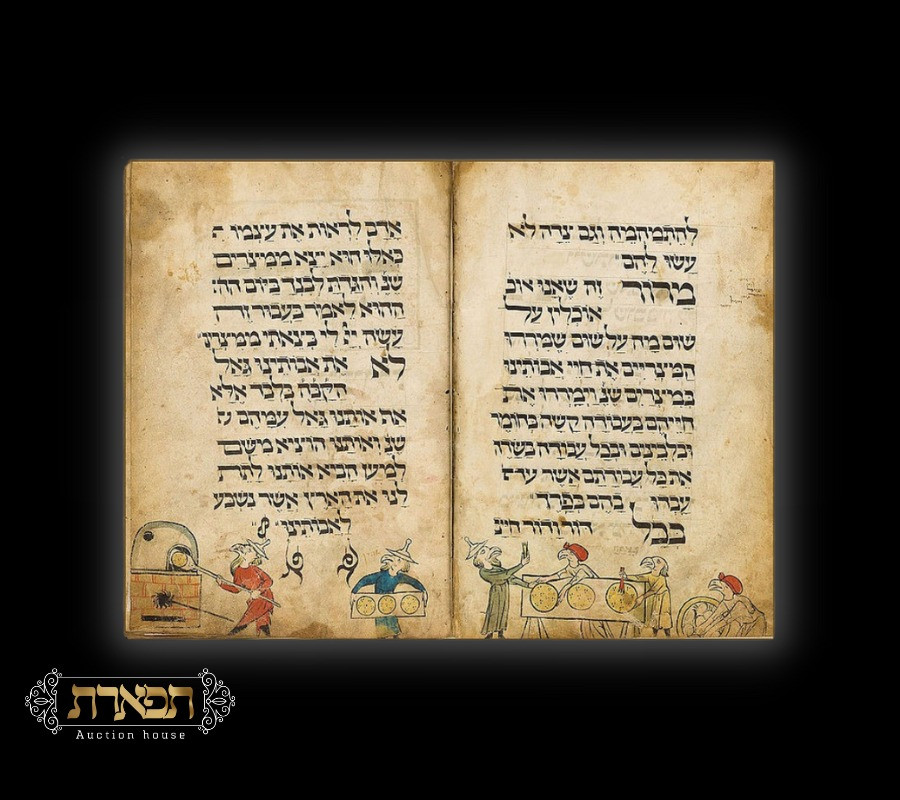 להתמהמה וגם צדה לא
עשו להם
מרור זה שאנו אוכ
אוכלין על
שום מה על שום שמררו
המצריים את חיי אבותינו
במצרים שנ' וימררו את
חייהם בעבודה קשה בחומר
ובלבנים ובכל עבודה בשדה
את כל עבודתם אשר
עבדו בהם בפרך
בכל דור ודור חייב
אדם לראות את עצמו
כאלו הוא יצא ממצרים
שנ' והגדת לבנך ביום הה'
ההוא לאמר בעבור זה
עשה יי לי בצאתי ממצרים
לא את אבותינו גאל
הקב'ה בלבד אלא
את אותנו גאל עמהם
שנ' ואותנו הוציא משם
למען הביא אותנו לתת
לנו את הארץ אשר נשבע
לאבותינו
תפארת
Auction house